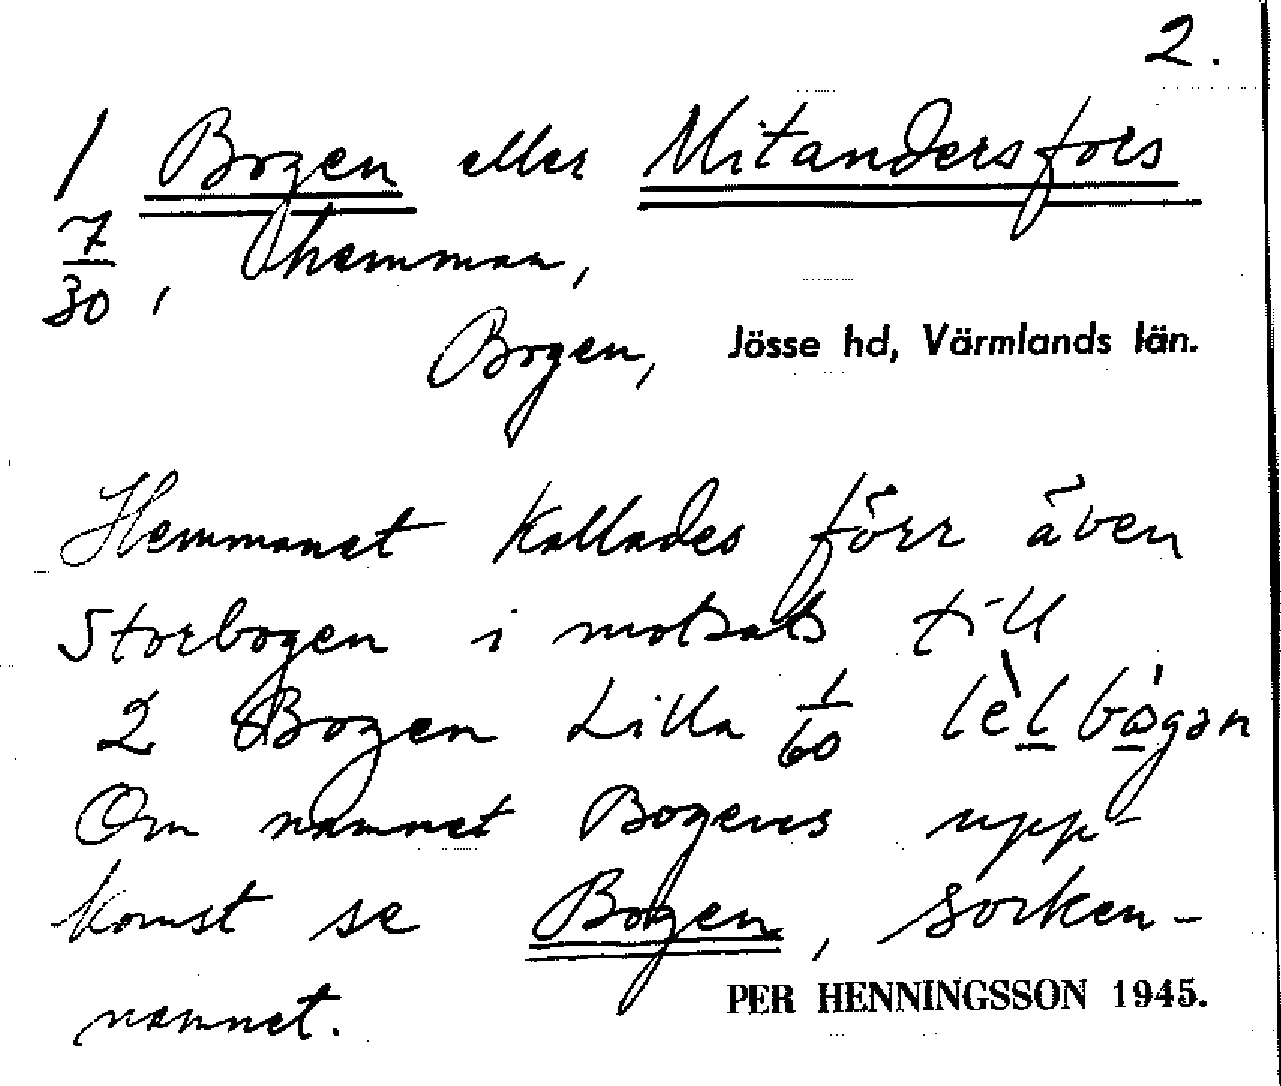 2.
1 Bogen eller Mitandersfors
7/30, hemman,
Bogen, Jösse hd, Värmlands län.
Hemmanet kallades förr även
Storbogen i motsats till
2 Bogen Lilla 1/60 lèl bògan
Om namnet Bogens upp-
komst se Bogen, socken-
namnet.
PER HENNINGSSON 1945.